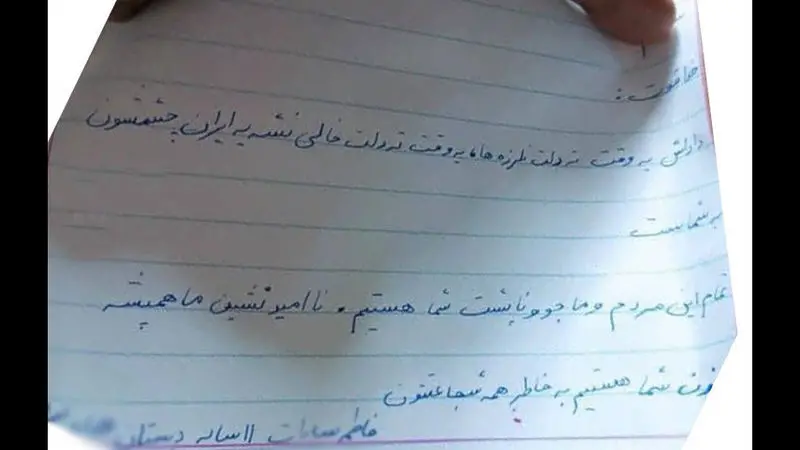 خدا قوت :
داداش یه وقت ته دلت نلرزه ها، یه وقت ته دلت خالی نشه یه ایران چشمشون
به شماست
تمام این مردم و ما جوونا پشت شما هستیم. ناامید نشین ما همیشه
شما هستیم به خاطر همه شجاعتتون
فاطمه سادات ۱۱ ساله